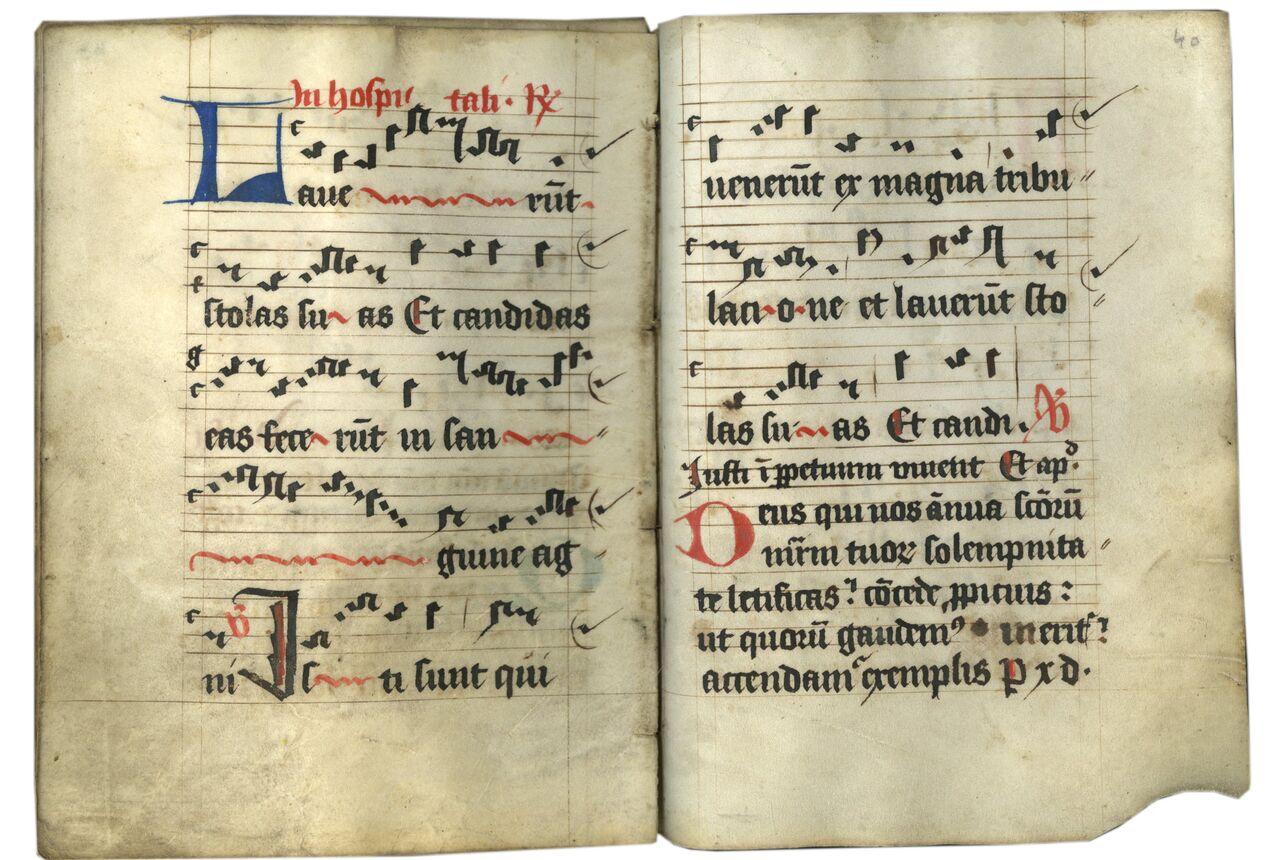 In hospitali. R
Laue rūt
stolas su as Et candidas
eas fece rūt in san
guine ag
ni V Isti sunt qui
40
uenerūt ex magna tribu
laci o ne et lauerūt sto
las su as Et candi. V
Iusti ī ꝑpetuum viuent Et apd.
Deus qui nos ānua scōrū
mr̄m tuoꝝ solempnita
te letificas? cōcede ꝓpicius:
ut quorū gaudemꝰ merit?
accendamr exemplis P x d.